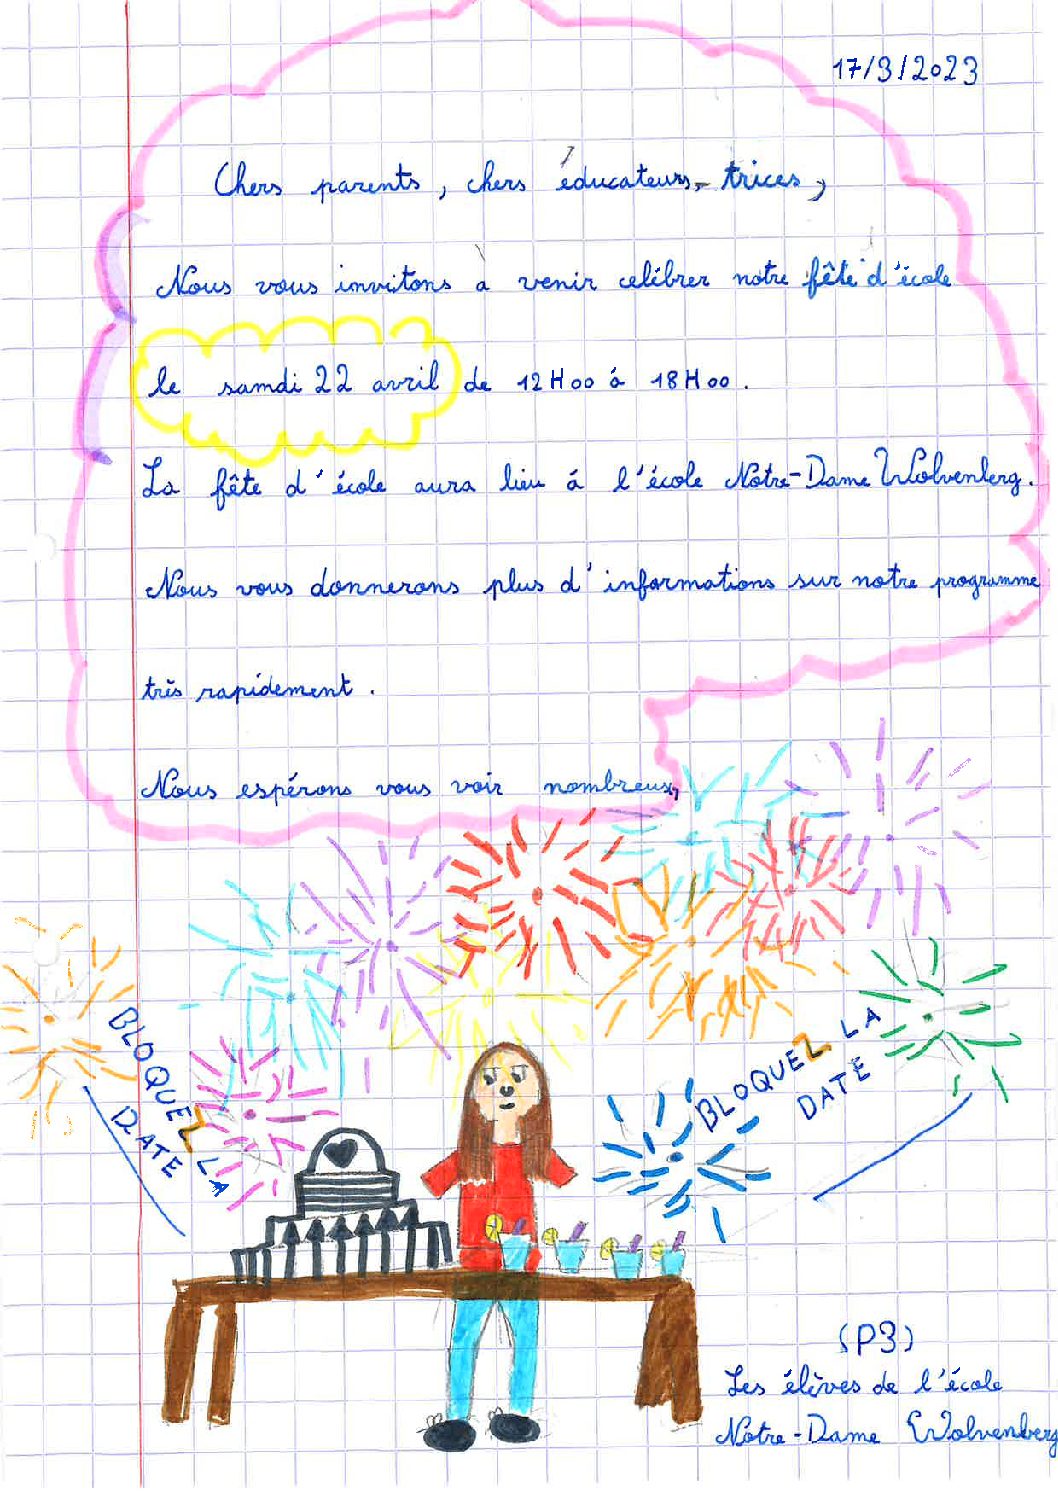 17/3/2023
Chers parents, chers éducateurs, - trices,
Nous vous invitons à venir celébrer notre fête d'école
le samdi 22 avril de 12H00 á 18H00.
La fête d'école aura lieu á l'école Notre-Dame Wolvenberg.
Nous vous donnerons plus d'informations sur notre programme
très rapidement.
Nous espérons vous voir nombreux,
BLOQUEZ LA
DATE
BLOQUEZ LA
DATE
(P3)
Les élèves de l'école
Notre-Dame Wolvenberg